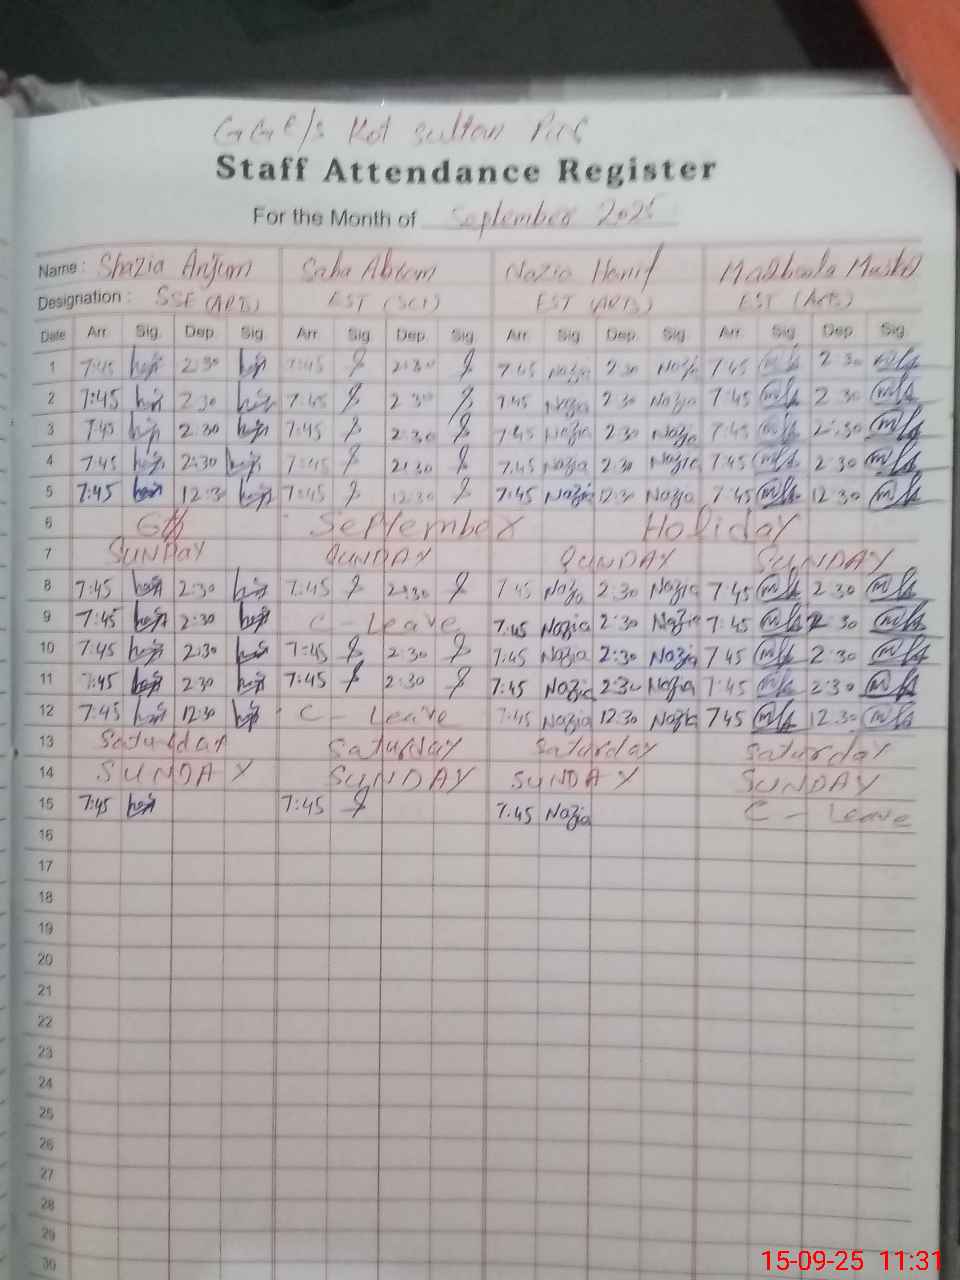 GGE/S Kot Sultan
Staff Attendance Register
For the Month of September 2025
Name : Shazia Anjum Saba Akram Nazia Hanif Maqboola
Designation : SSE (ARTS) EST (SCI) EST (ARTS) EST (Arts)
Date Arr. Sig. Dep. Sig. Arr. Sig. Dep. Sig. Arr. Sig. Dep. Sig. Arr. Sig. Dep. Sig.
1 7:45 2:30 7:45 2:30 7:45 Nazia 2:30 Nazia 7:45 2:30
2 7:45 2:30 7:45 2:30 7:45 Nazia 2:30 Nazia 7:45 2:30
3 7:45 2:30 7:45 2:30 7:45 Nazia 2:30 Nazia 7:45 2:30
4 7:45 2:30 7:45 2:30 7:45 Nazia 2:30 Nazia 7:45 2:30
5 7:45 12:30 7:45 12:30 7:45 Nazia 12:30 Nazia 7:45 12:30
6 6th September Holiday
7 SUNDAY SUNDAY SUNDAY SUNDAY
8 7:45 2:30 7:45 2:30 7:45 Nazia 2:30 Nazia 7:45 2:30
9 7:45 2:30 C - Leave 7:45 Nazia 2:30 Nazia 7:45 2:30
10 7:45 2:30 7:45 2:30 7:45 Nazia 2:30 Nazia 7:45 2:30
11 7:45 2:30 7:45 2:30 7:45 Nazia 2:30 Nazia 7:45 2:30
12 7:45 12:30 C - Leave 7:45 Nazia 12:30 Nazia 7:45 12:30
13 Saturday Saturday Saturday Saturday
14 SUNDAY SUNDAY SUNDAY SUNDAY
15 7:45 7:45 7:45 Nazia C - Leave
16
17
18
19
20
21
22
23
24
25
26
27
28
29
30
15-09-25 11:31